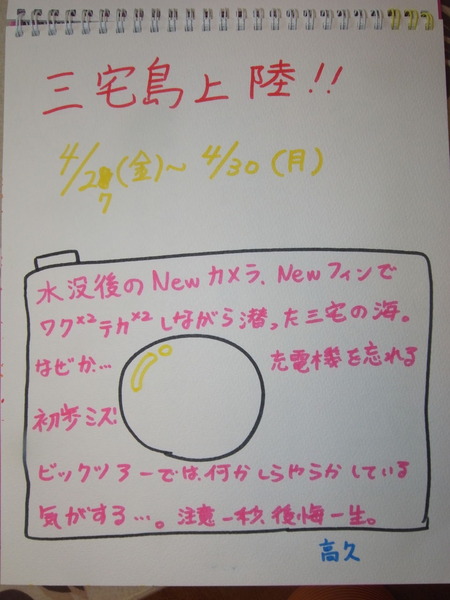 三宅島上陸!!
4/27(金)~4/30(月)
水没後のNewカメラ、Newフィンで
ワク×2テカ×2しながら潜った三宅の海。
なぜか… 充電機を忘れる
初歩ミズ
ビックツアーでは、何かしらやらかしている
気がする…。注意一秒、後悔一生。
高久